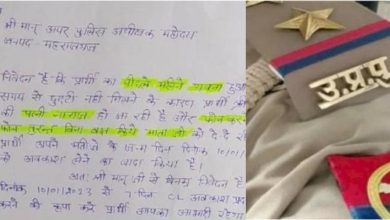 श्री मान् अपर पुलिस अधीक्षक महोदय
जनपद- महराजगंज
निवेदन है कि प्रार्थी का पिछले महीने गवना हुआ
समय से छुट्टी नहीं मिलने के कारण प्रार्थी की
की पत्नी नाराज हो जा रही है और फोन करने
फोन तुरन्त बिना बात किये माता जी को दे दे रही
प्रार्थी अपने भतीजे के जन्म दिन दिनांक 10/01/
को अवकाश लेने का वादा किया है।
अतः श्री मान् जी से विनम्र निवेदन है
दिनांक 10/01/2023 से 7 दिन CL अवकाश प्रदान
करने की कृपा करें प्रार्थी आपका आभारी रहेगा
उ.प्र.पु